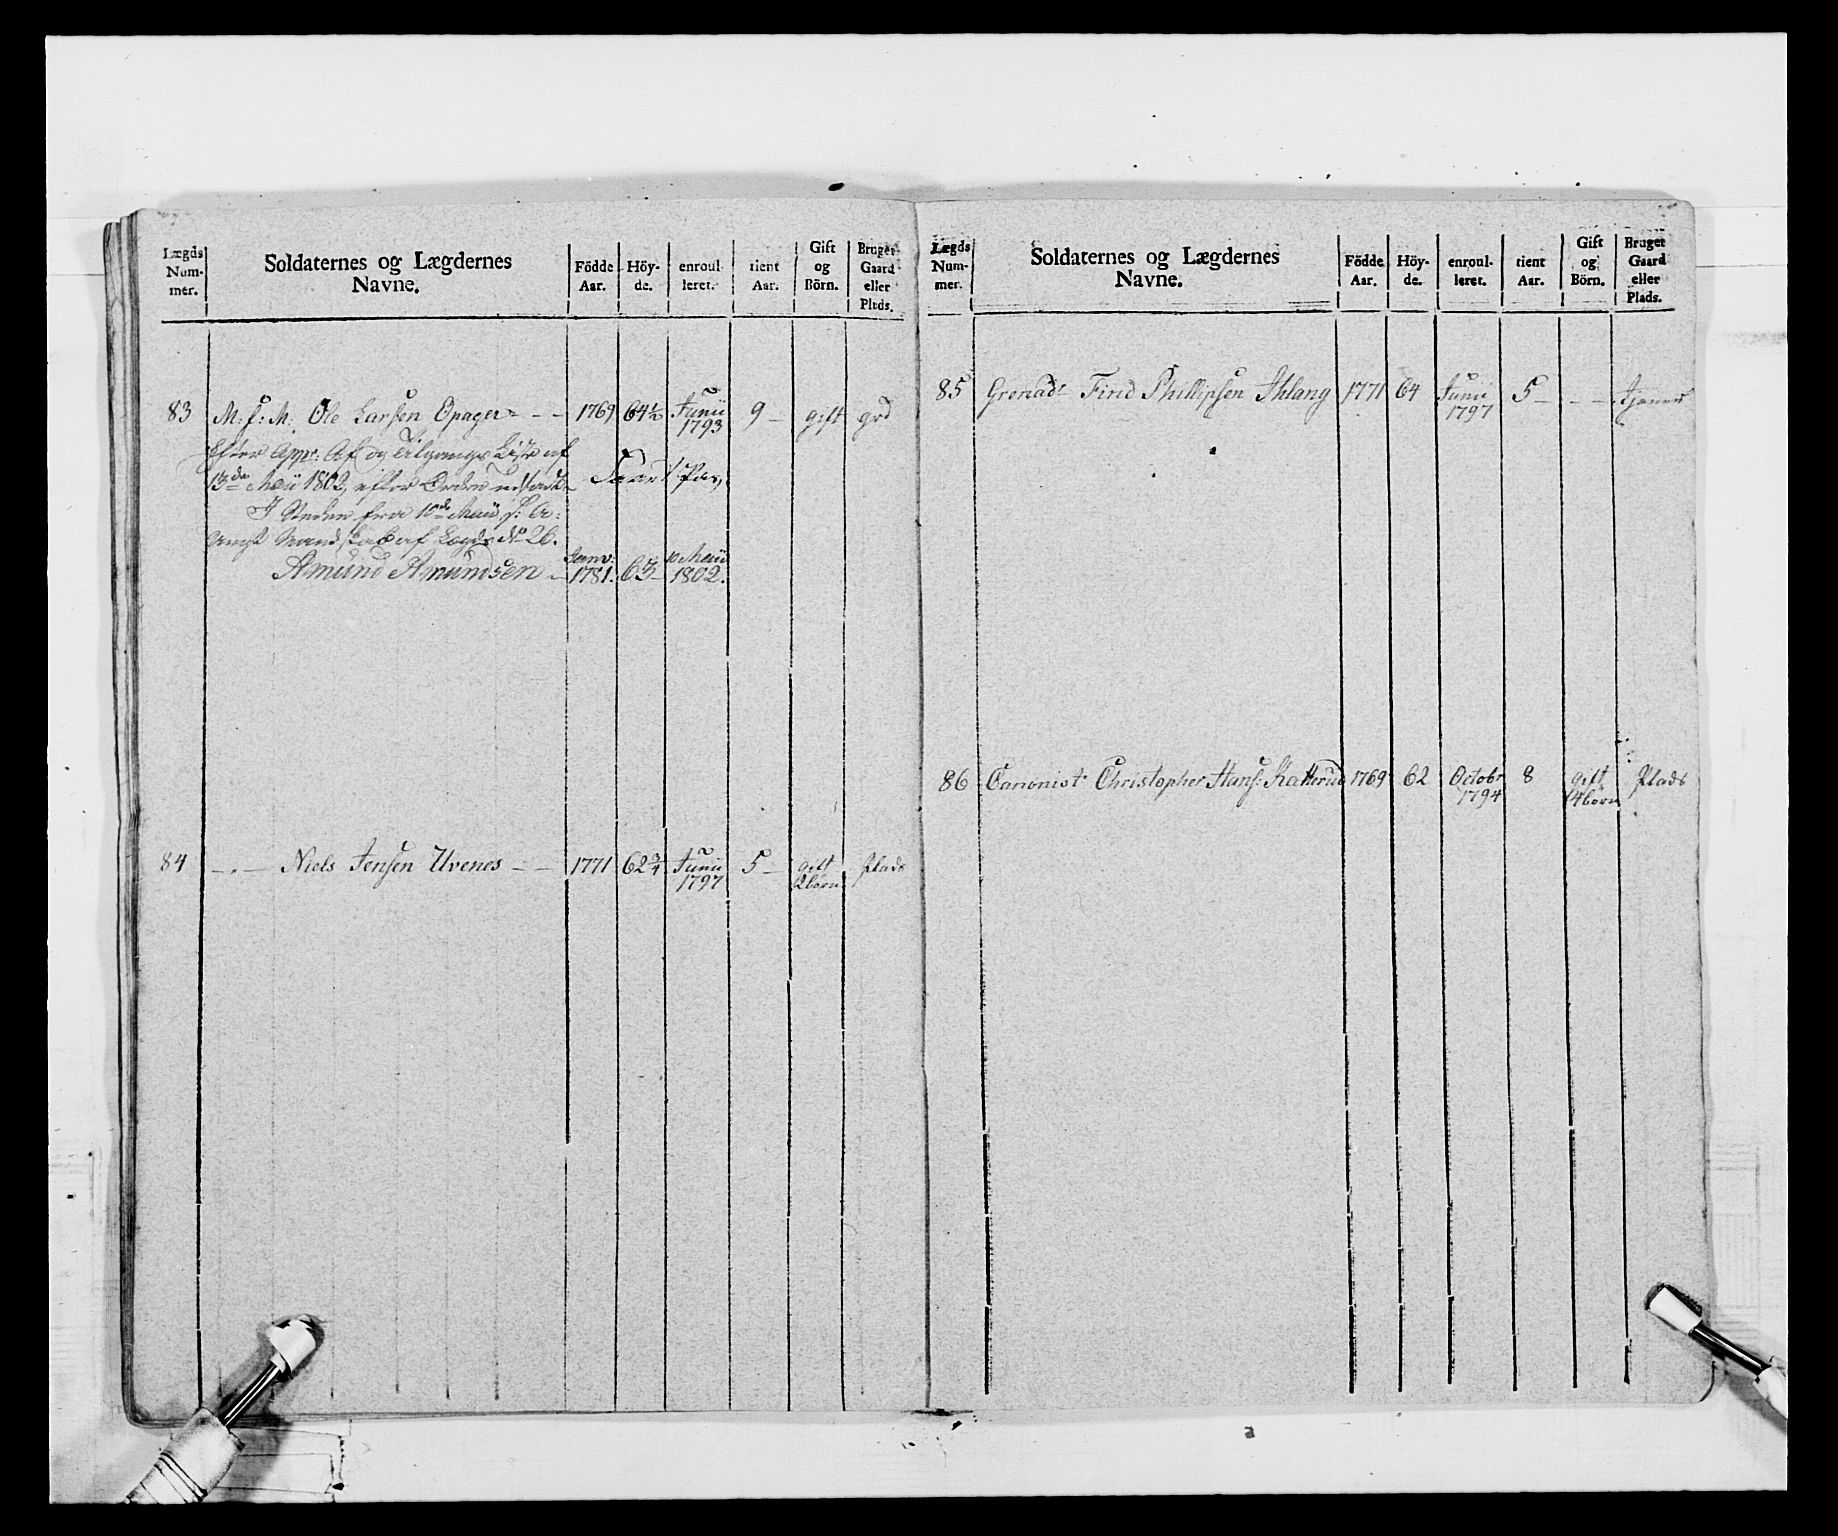 Lægds Num- mer.
Soldaternes og Lægdernes Navne.
Födde Aar.
Höy- de.
enroul- leret.
tient Aar.
Gift og Börn.
Bruger Gaard eller Plads.
83 M: f: M: Ole Larsen Opager - - 1769 64½ Junii 1793 9 - gift grd
Efter App: Af og Tilgangs Liste af
13de Maii 1802, efter Ordre udsadt Pas,
I Steden fra 10de Maii s: A:
af Lægds No 26.
Amund Amundsen - Janv: 1781. 63 - 10 Maii 1802.
84 - " - Niels Jensen Uvenes - - 1771 62¾ Junii 1797 5 - gift 2 börn Plads
Lægds Num- mer.
Soldaternes og Lægdernes Navne.
Födde Aar.
Höy- de.
enroul- leret.
tient Aar.
Gift og Börn.
Bruger Gaard eller Plads.
85 Grenadr Find Phillipsen Ihlang 1771 64 Junii 1797 5 - - - tjener
86 Canonist Christopher Hans: Katterud 1769 62 Octobr 1794 8 gift 4 börn Plads